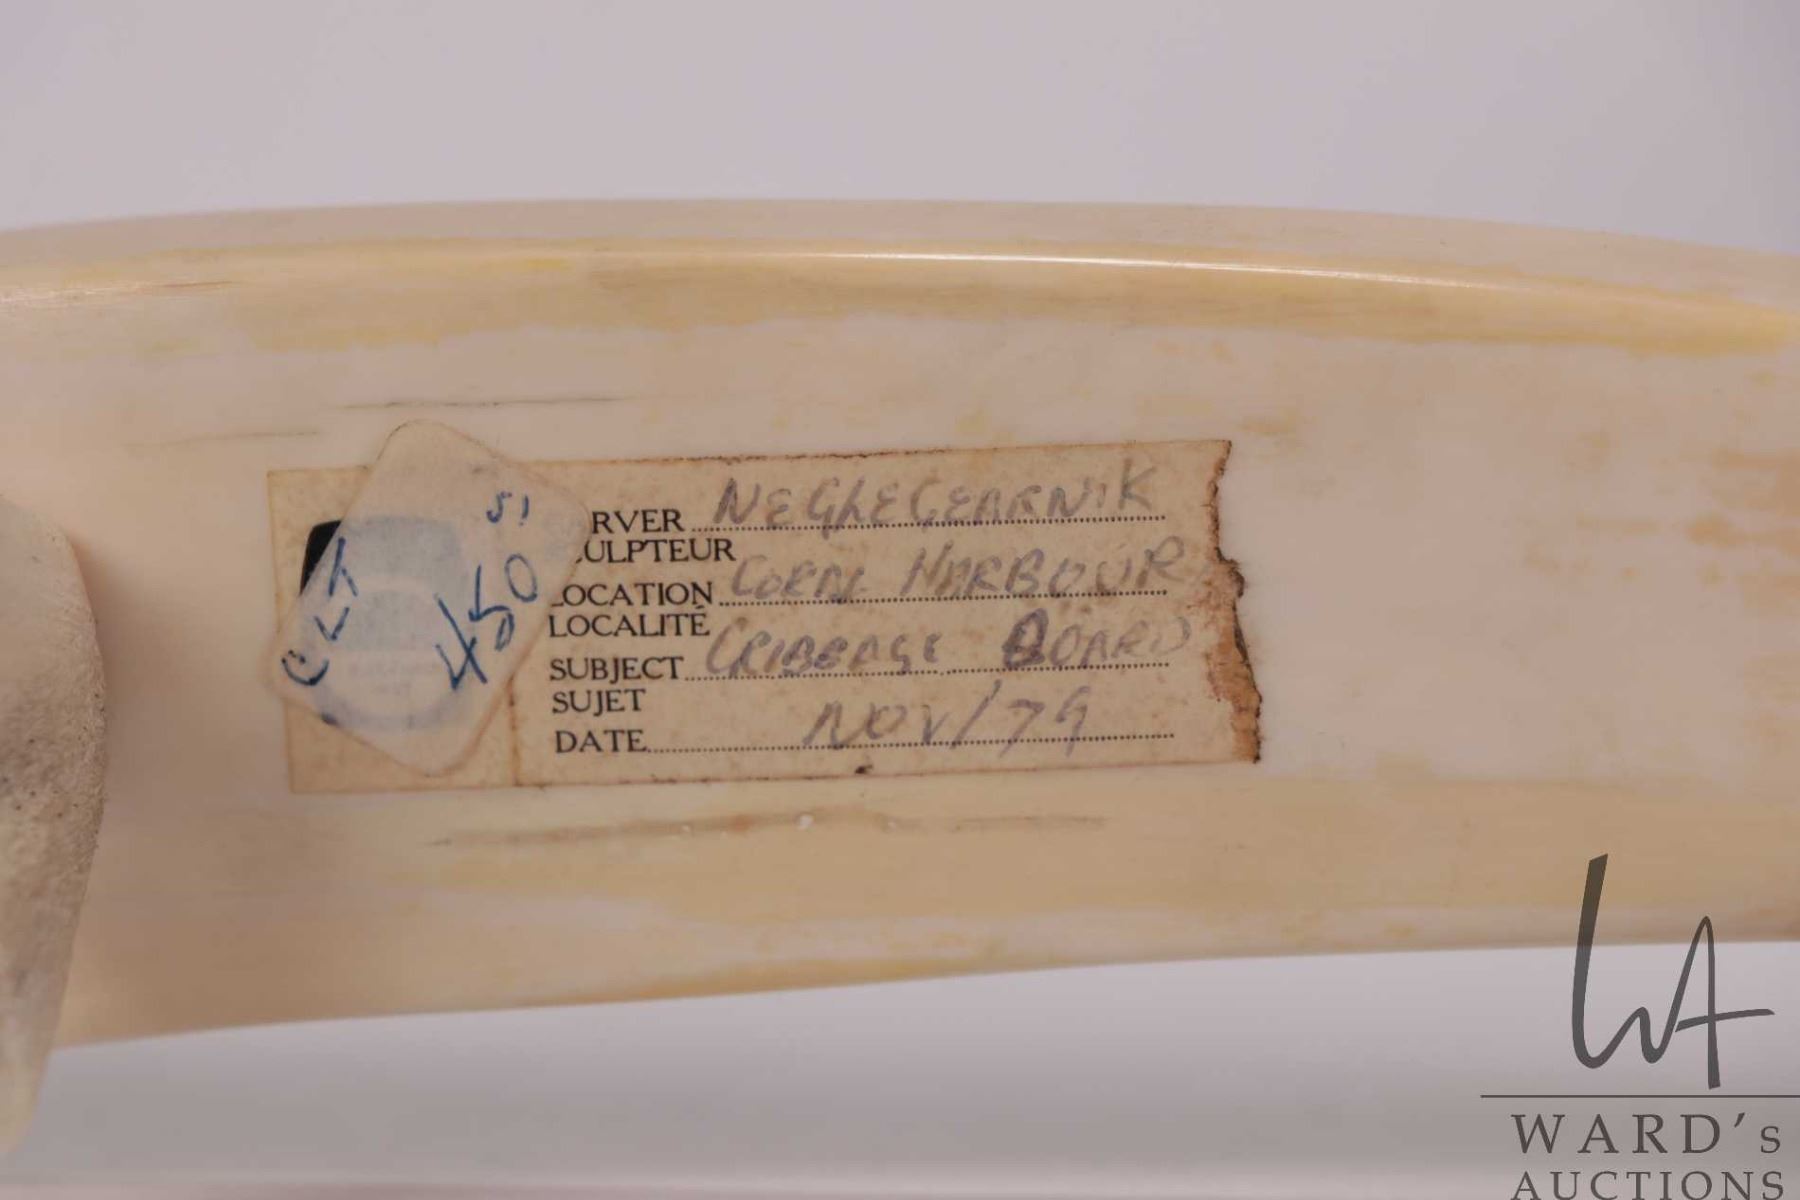 51
450
RVER NEGLECEARNIK
CULPTEUR
LOCATION CORAL HARBOUR
LOCALITÉ
SUBJECT CRIBBAGE BOARD
SUJET
DATE NOV/79
WA
WARD's
AUCTIONS